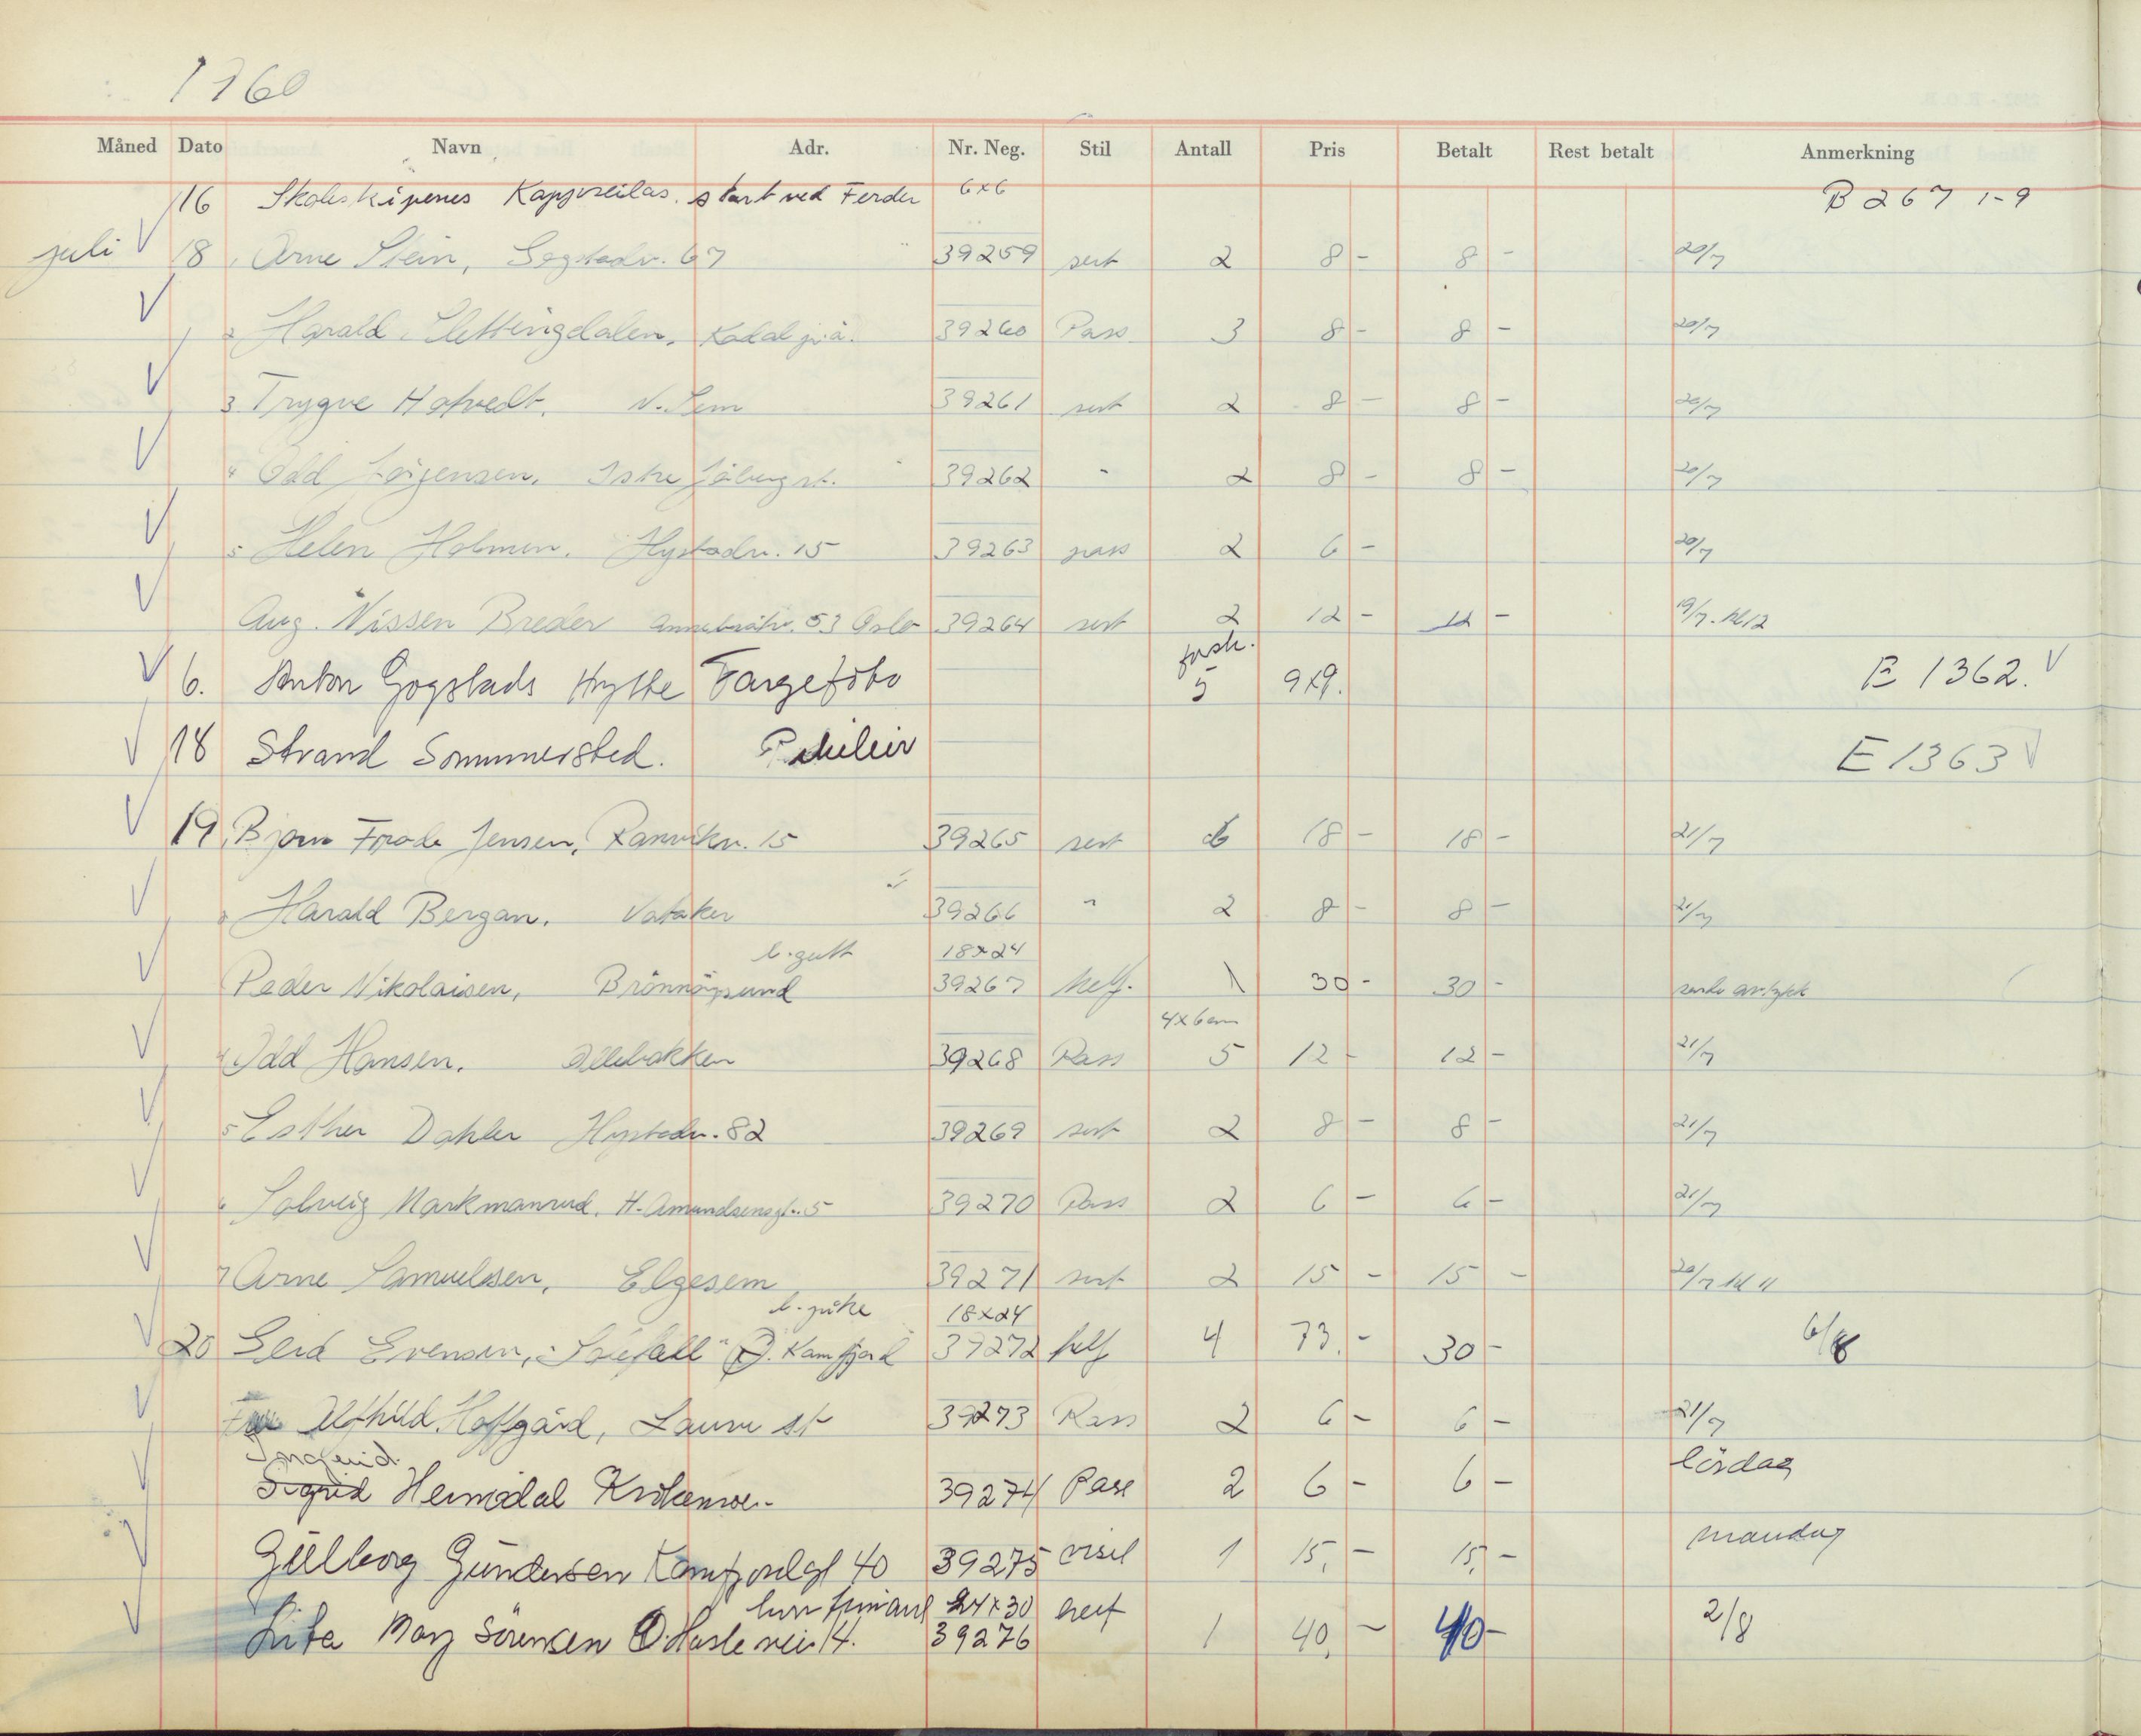 1960
Måned Dato Navn Adr. Nr. Neg. Stil Antall Pris Betalt Rest betalt Anmerkning
16 Skoleskipenes Kappseilas. start ved Ferder 6x6 B 267 1-9
juli 18 Arne Stein, 67 39259 sert 2 8 - 8 - 20/7
2 Harald Klettingdalen, Kodal 39260 Pass 3 8 - 8 - 20/7
3 Trygve Hotvedt, N. Sem 39261 sert 2 8 - 8 - 20/7
4 Odd Jörgensen, Istre 39262 - 2 8 - 8 - 20/7
5 Helen Holmen. Hystadv. 15 39263 pass 2 6 - 20/7
Aug. Nissen Breder 53 Oslo 39264 sert 2 12 - 12 - 19/7. kl 12
6. Anton Gogstads Hytte Fargefoto postk. 5 9x9. E 1362.
18 Strand Sommersted. E 1363
19 Bjørn Frode Jensen, Ranvikv. 15 39265 sert 6 18 - 18 - 21/7
Harald Bergan. Vataker 39266 " 2 8 - 8 - 21/7
b. gutt 18x24
Peder Nikolaisen, Brönnöysund 39267 helf. 1 30 - 30 -
4x6 cm
4 Odd Hansen. 39268 Pass 5 12 - 12 - 21/7
5 Esther Dahler Hystadv. 82 39269 sert 2 8 - 8 - 21/7
6 Solveig Markmanrud. H. Amundsensgt. 5 39270 Pass 2 6 - 6 - 21/7
7 Arne Samuelsen, Elgesem 39271 sert 2 15 - 15 - 20/7 kl 11
b. pike 18x24
20 Evensen, Kamfjord 39272 helf 4 73. - 30 - 6/8
Alfhild Hoffgård, Lauve st 39273 Pass 2 6 - 6 - 21/7
Ingerid.
Sigrid Heimdal Krokemoen 39274 Pass 2 6 - 6 - lördag
Gülborg Gündersen Kamfjordgt 40 39275 visit 1 15, - 15, - mandag
24x30 helf
Lita May Sörensen Ö. Hasle vei 14. 39276 1 40, - 40 - 2/8